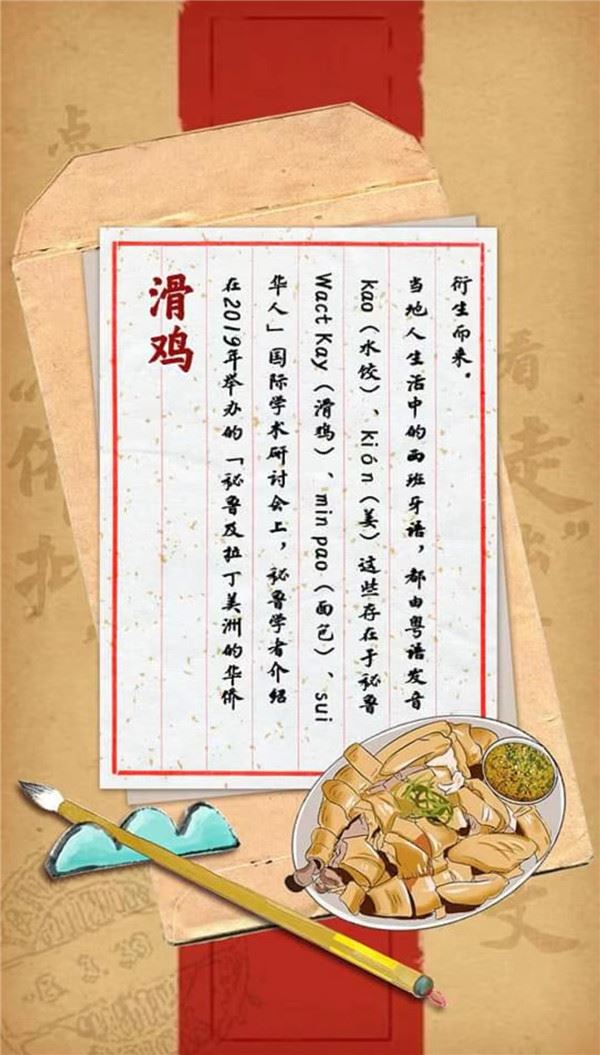 滑鸡
在2019年举办的「秘鲁及拉丁美洲的华侨
华人」国际学术研讨会上，秘鲁学者介绍
Wact Kay（滑鸡）、min pao（面包）、sui
kao（水饺）、kión（姜）这些存在于秘鲁
当地人生活中的西班牙语，都由粤语发音
衍生而来。
点
看
走